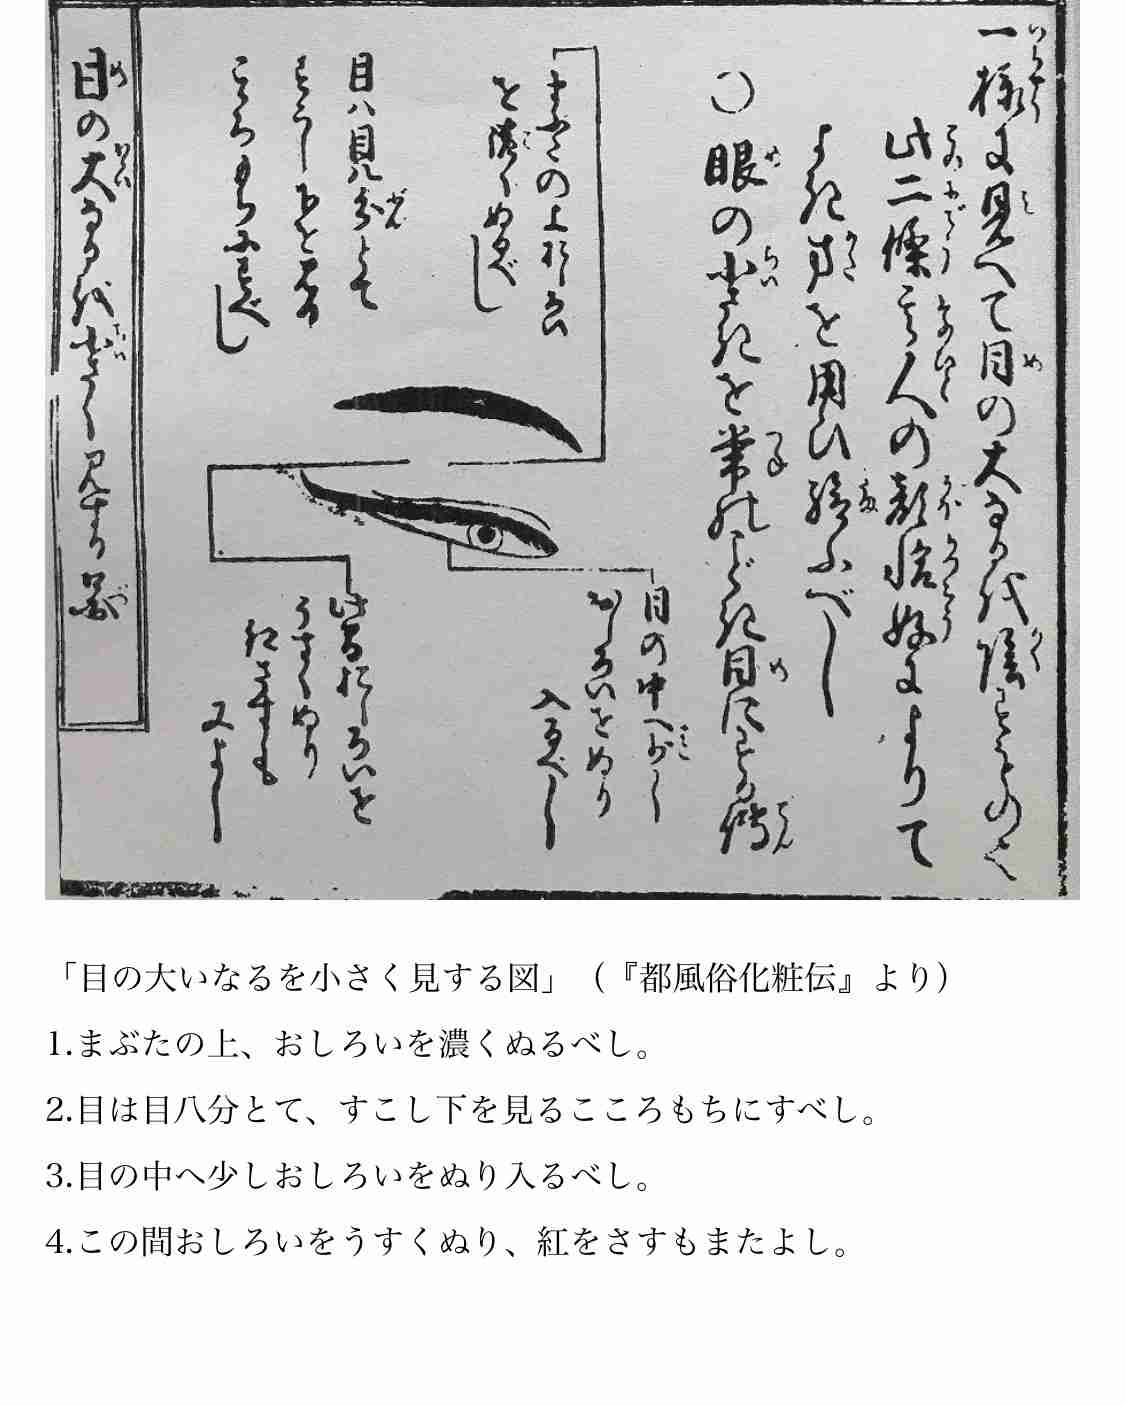 一様に見へて目の大なるは隠るゝもの也
此二條其人の顔恰好によりて
よき方を用ひ給ふべし
〇眼の小さきを常のごとき目にする傳
まぶたの上おしろい
を濃くぬるべし
目ハ目八分とて
すこし下を見る
こころもちにすべし
目の中へ少し
おしろいをぬり
入るべし
此間おしろいを
うすくぬり
紅をさすも
又よし
目の大なるを小さく見する図
「目の大いなるを小さく見する図」（『都風俗化粧伝』より）
1.まぶたの上、おしろいを濃くぬるべし。
2.目は目八分とて、すこし下を見るこころもちにすべし。
3.目の中へ少しおしろいをぬり入るべし。
4.この間おしろいをうすくぬり、紅をさすもまたよし。